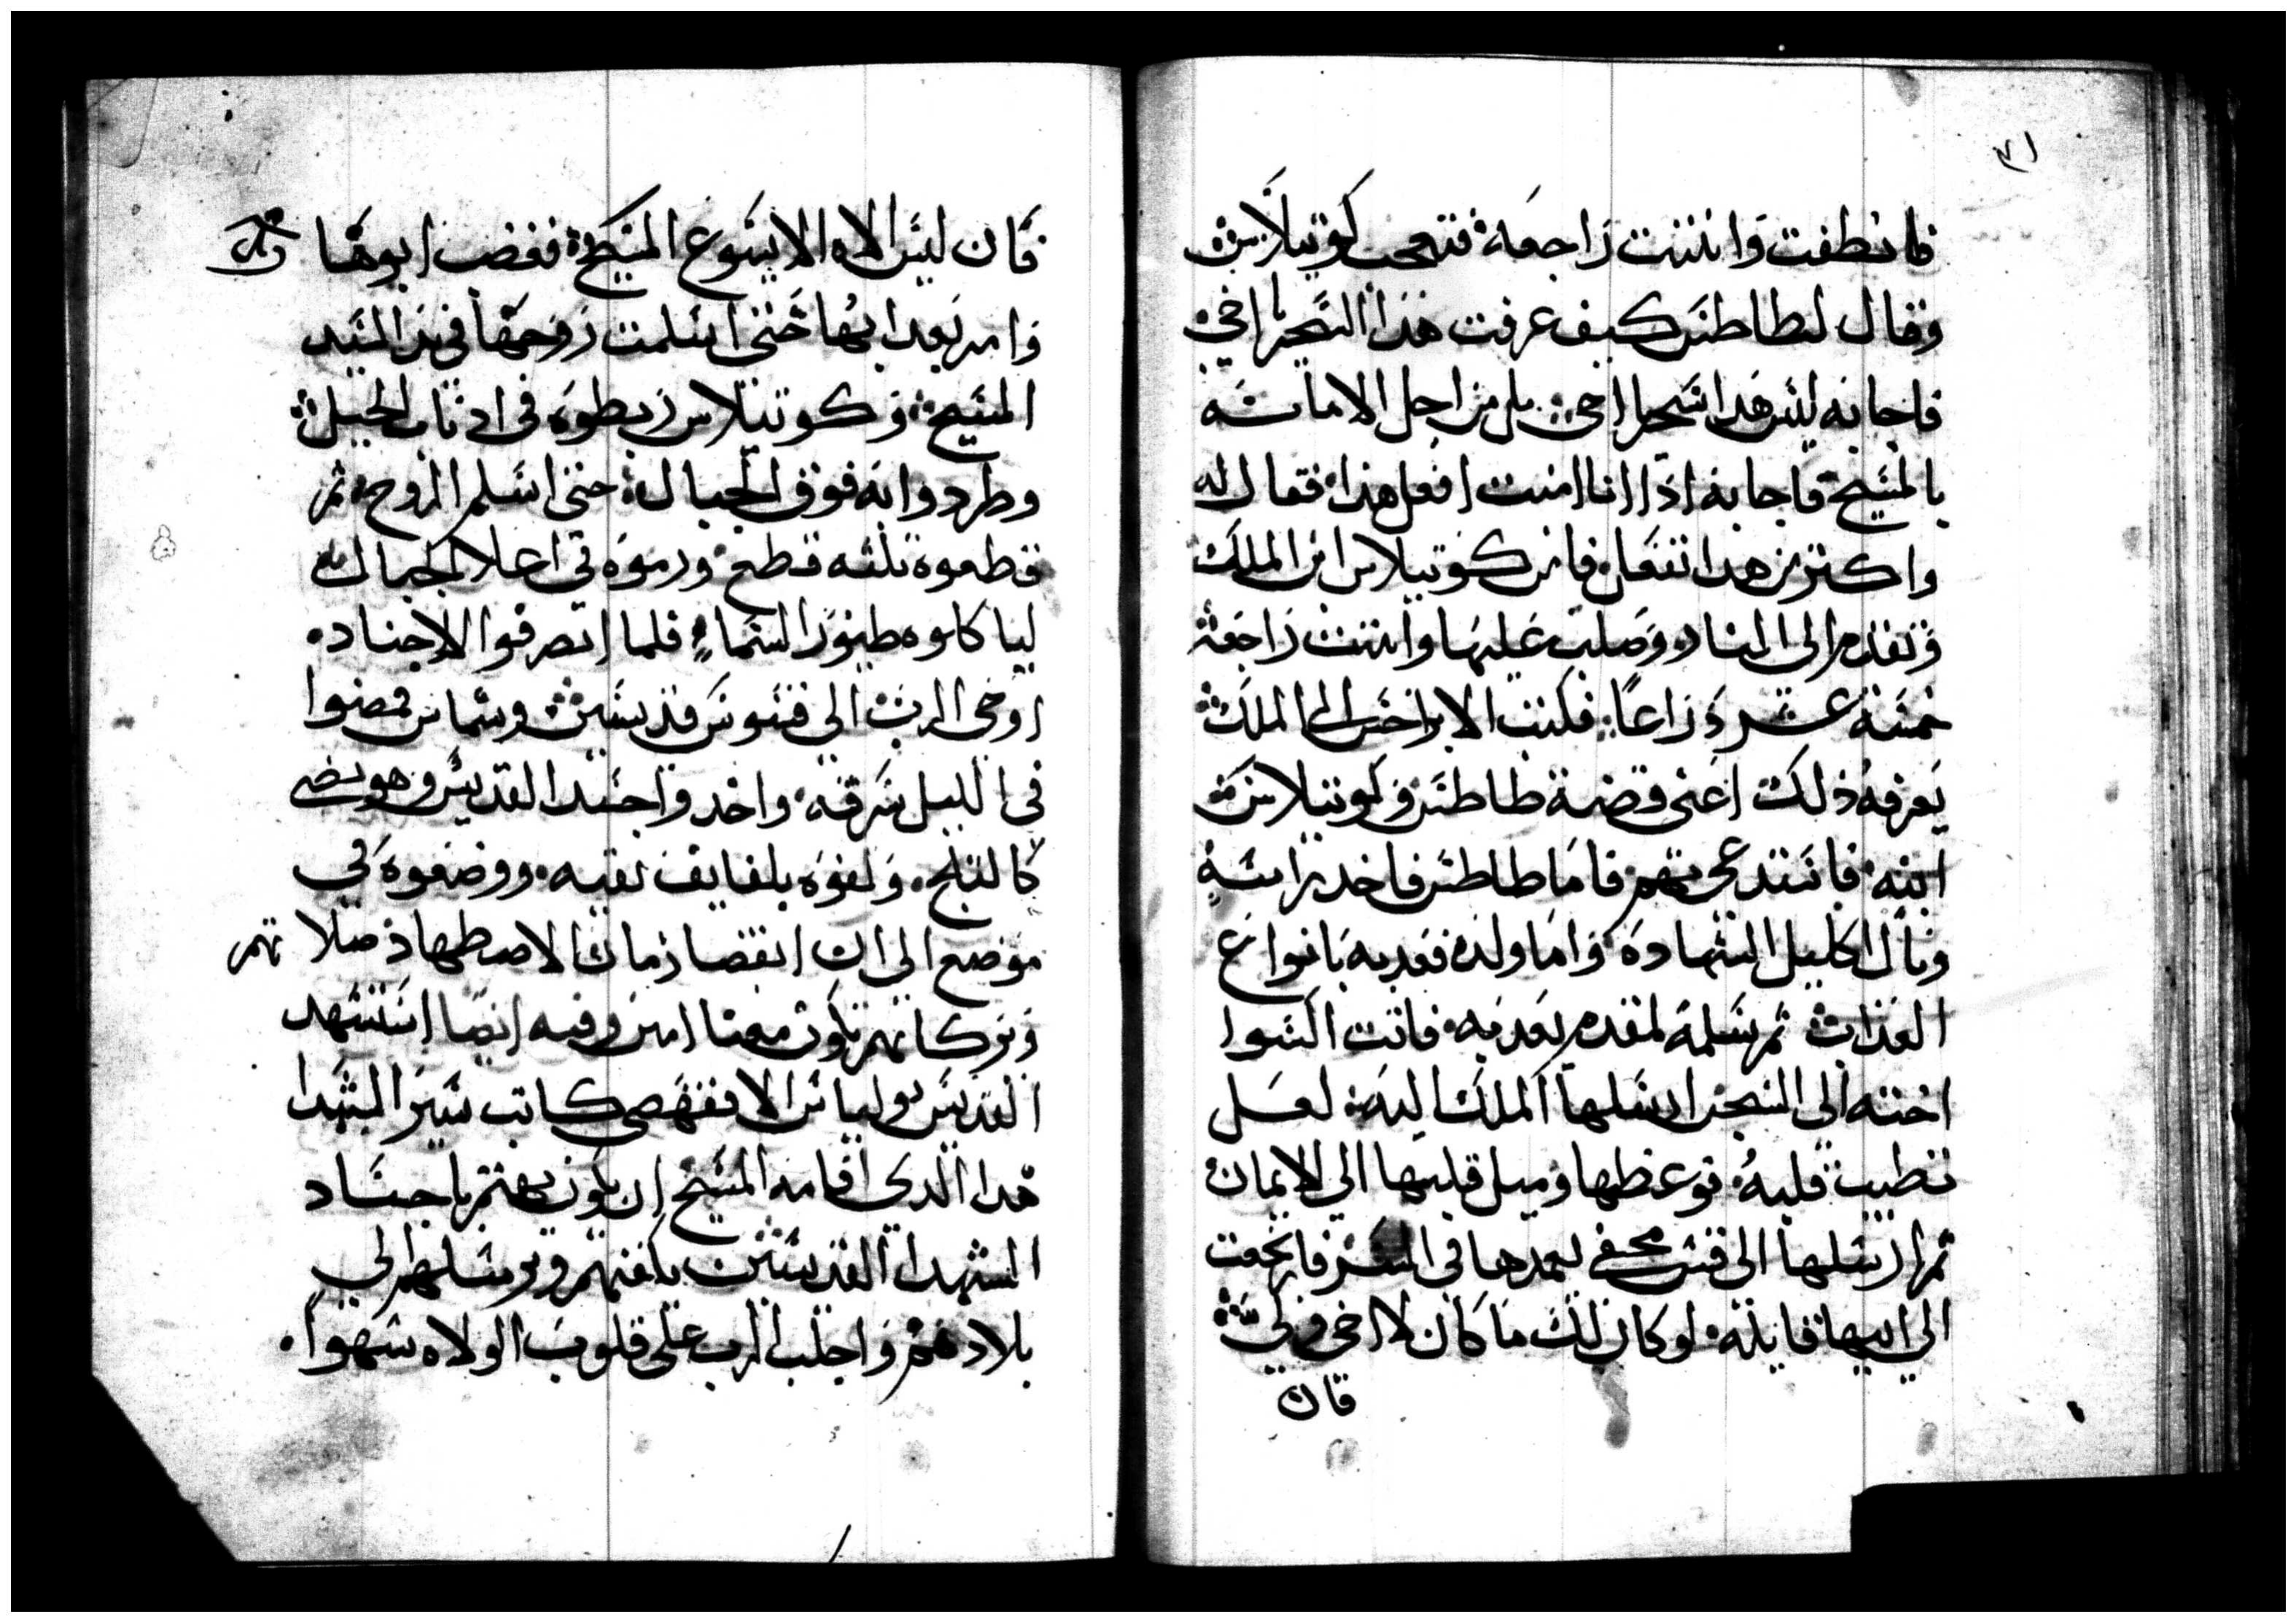 ٣١
فانطفت وانتنت راجعه فتعجب كوتيلاس
وقال لطاطس كيف عرفت هذا السحر يا اخي
فاجابه ليس هدا سحرا اخي بل من اجل الامانه
بالمسيح فاجابه اذا انا امنت افعل هذا فقال له
واكتر من هدا تفعل فامن كوتيلاس ابن الملك
وتقدم الى النار وصلب عليها وانتنت راجعه
خمسة عشر دراعا فكتب الابراخس الى الملك
يعرفه ذلك اعني قضية طاطس وكوتيلاس
ابنه فاستدعى بهم فاما طاطس فاخد راسه
ونال اكليل الشهاده واما ولده فعدبه بانواع
العذاب ثم سلمه لمقدم يعدبه فاتت السوا
اخته الى السجن ارسلها الملك اليه لعل
تطيب قلبه فوعظها وميل قلبها الى الايمان
ثم ارسلها الى قس مخفي ليعمدها في السر فارجعت
الى ابيها قايله لو كان لك ما كان لاخي ولي
فان
فان ليس الاه الا يسوع المسيح فغضب ابوها
وامر بعدابها حتى اسلمت روحها في يد السيد
المسيح وكوتيلاس ربطوه في ادناب الخيل
وطردوا به فوق الجبال حتى اسلم الروح ثم
قطعوه تلته قطع ورموه في اعلا الجبال
ليا كلوه طيور السماء فلما انصرفوا الاجناد
اوحى الرب الى قسوس قديسين وشماس فمضوا
في الليل سرقه واخدوا جسد القديس وهو يضي
كالتلج ولفوه بلفايف نقيه ووضعوه في
موضع الى ان انقضا زمان الاضطهاد صلاتهم
وبركاتهم تكون معنا امين وفيه ايضا استشهد
القديس يولياس الاقفهصي كاتب سير الشهدا
هدا الدي اقامه المسيح ان يكون يهتم باجساد
الشهدا القديسين يكفنهم ويرسلهم الى
بلادهم واجلب الرب على قلوب الولاه سهوا